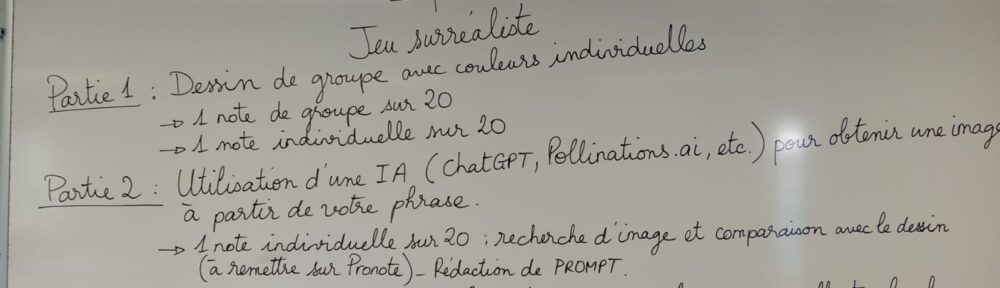 Jeu surréaliste
Partie 1 : Dessin de groupe avec couleurs individuelles
→ 1 note de groupe sur 20
→ 1 note individuelle sur 20
Partie 2 : Utilisation d'une IA (ChatGPT, Pollinations.ai, etc.) pour obtenir une image
à partir de votre phrase.
→ 1 note individuelle sur 20 : recherche d'image et comparaison avec le dessin
(à remettre sur Pronote) - Rédaction de PROMPT.